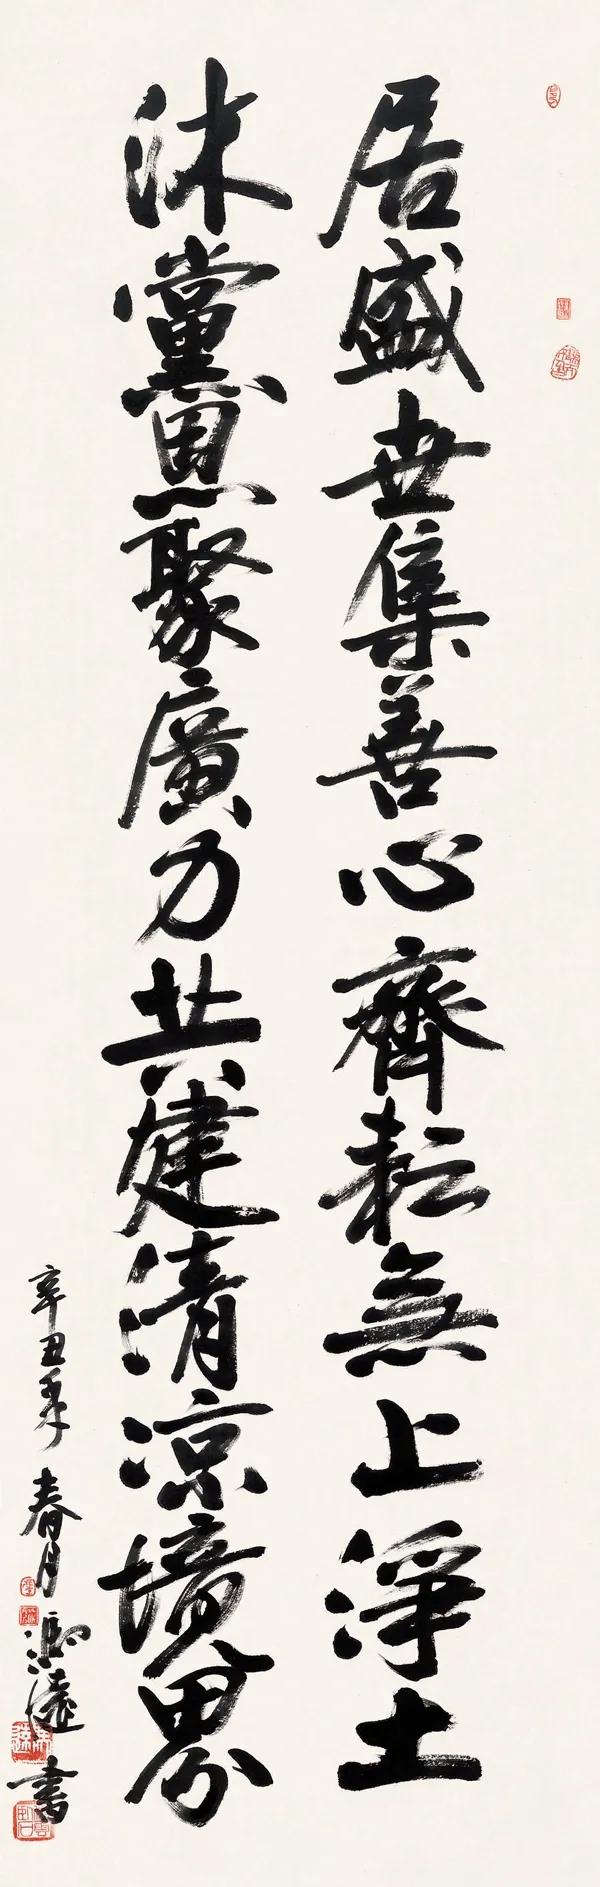 居盛世集善心齊耘無上淨土
沐黨恩聚廣力共建清涼境界
辛丑年春月馮遠書